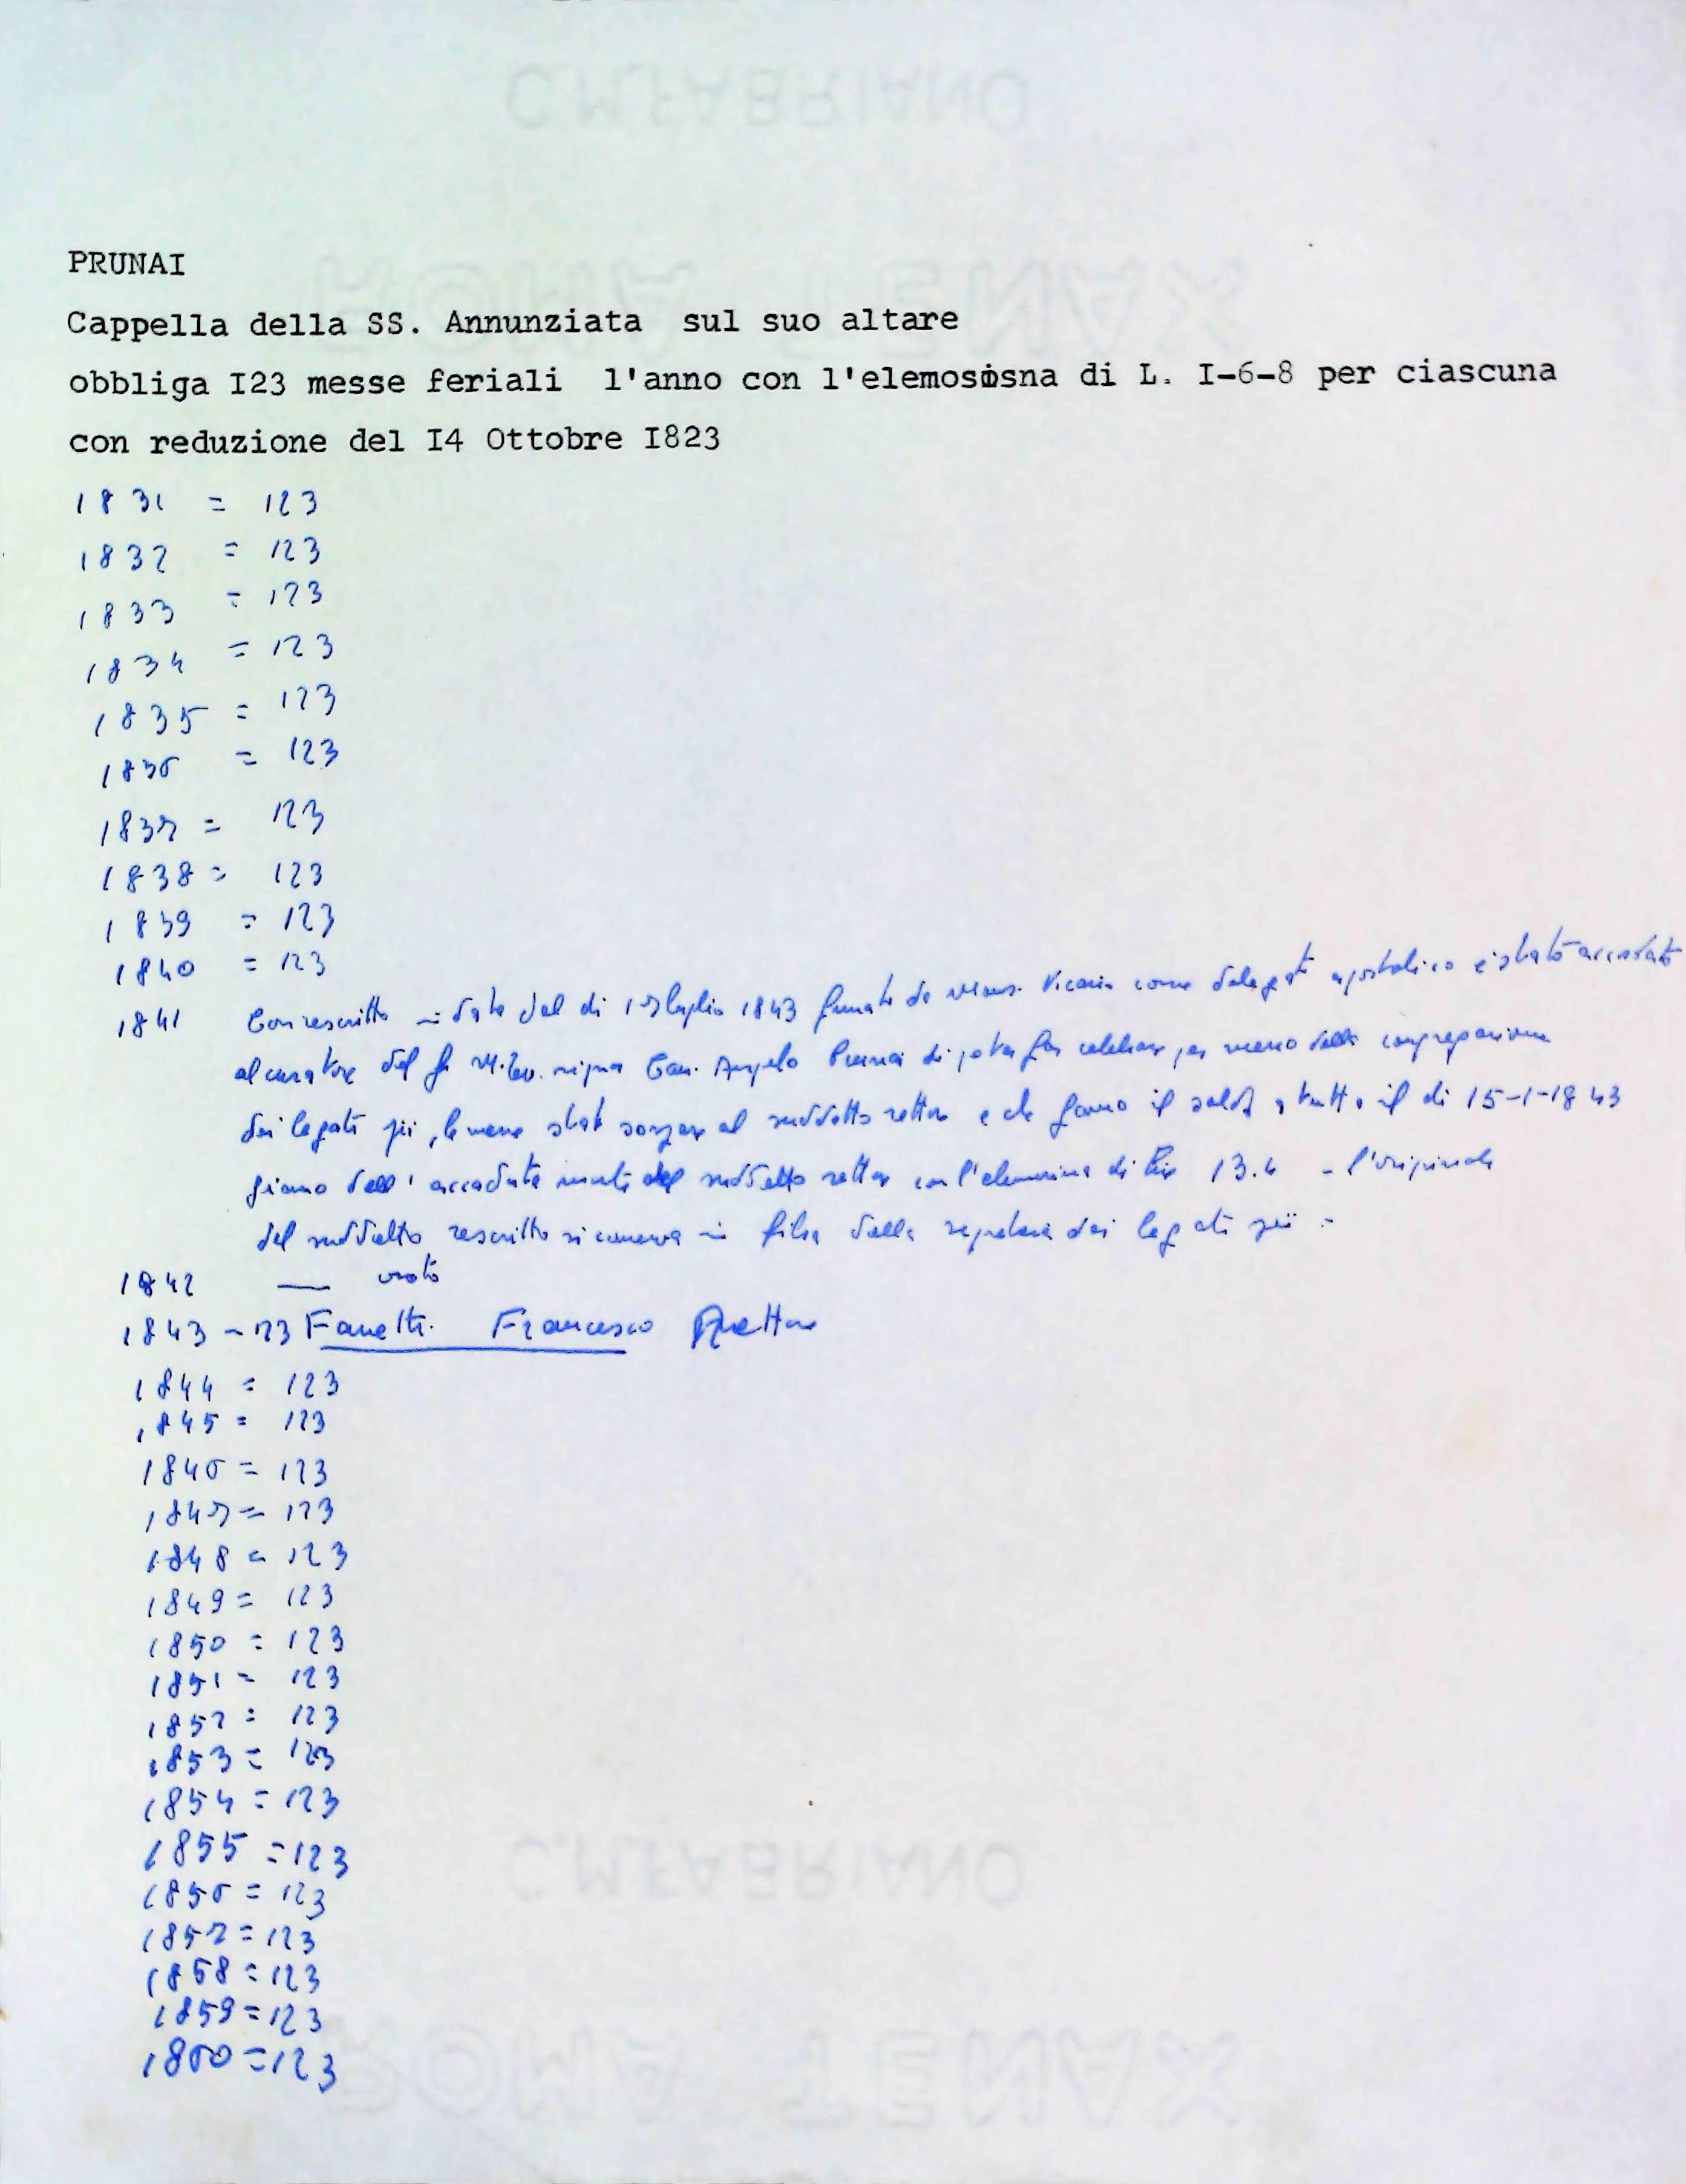 C.M.FABRIANO
ROMA TENAX
PRUNAI
Cappella della SS. Annunziata sul suo altare
obbliga I23 messe feriali l'anno con l'elemosisna di L. I-6-8 per ciascuna
con reduzione del I4 Ottobre I823
1831 = 123
1832 = 123
1833 = 123
1834 = 123
1835 = 123
1836 = 123
1837 = 123
1838 = 123
1839 = 123
1840 = 123
1841 Con rescritto in data del di luglio 1843 firmato da Mons. Vicario come delegato apostolico è stato accordato
al curatore del fu Can. Angelo Prunai di poter far celebrare per mezzo della congregazione
dei legati pii, le messe al suddetto rettore e che fanno il saldo a tutto il di 15-1-1843
giorno dell' accaduta morte del suddetto rettore con l'elemosina di Lire 13.4 - l'originale
del suddetto rescritto si conserva in filza della segreteria dei legati pii -
1842 — vuoto
1843 - 123 Fanetti Francesco Rettore
1844 = 123
1845 = 123
1846 = 123
1847 = 123
1848 = 123
1849 = 123
1850 = 123
1851 = 123
1852 = 123
1853 = 123
1854 = 123
1855 = 123
1856 = 123
1857 = 123
1858 = 123
1859 = 123
1860 = 123
C.M.FABRIANO
ROMA TENAX